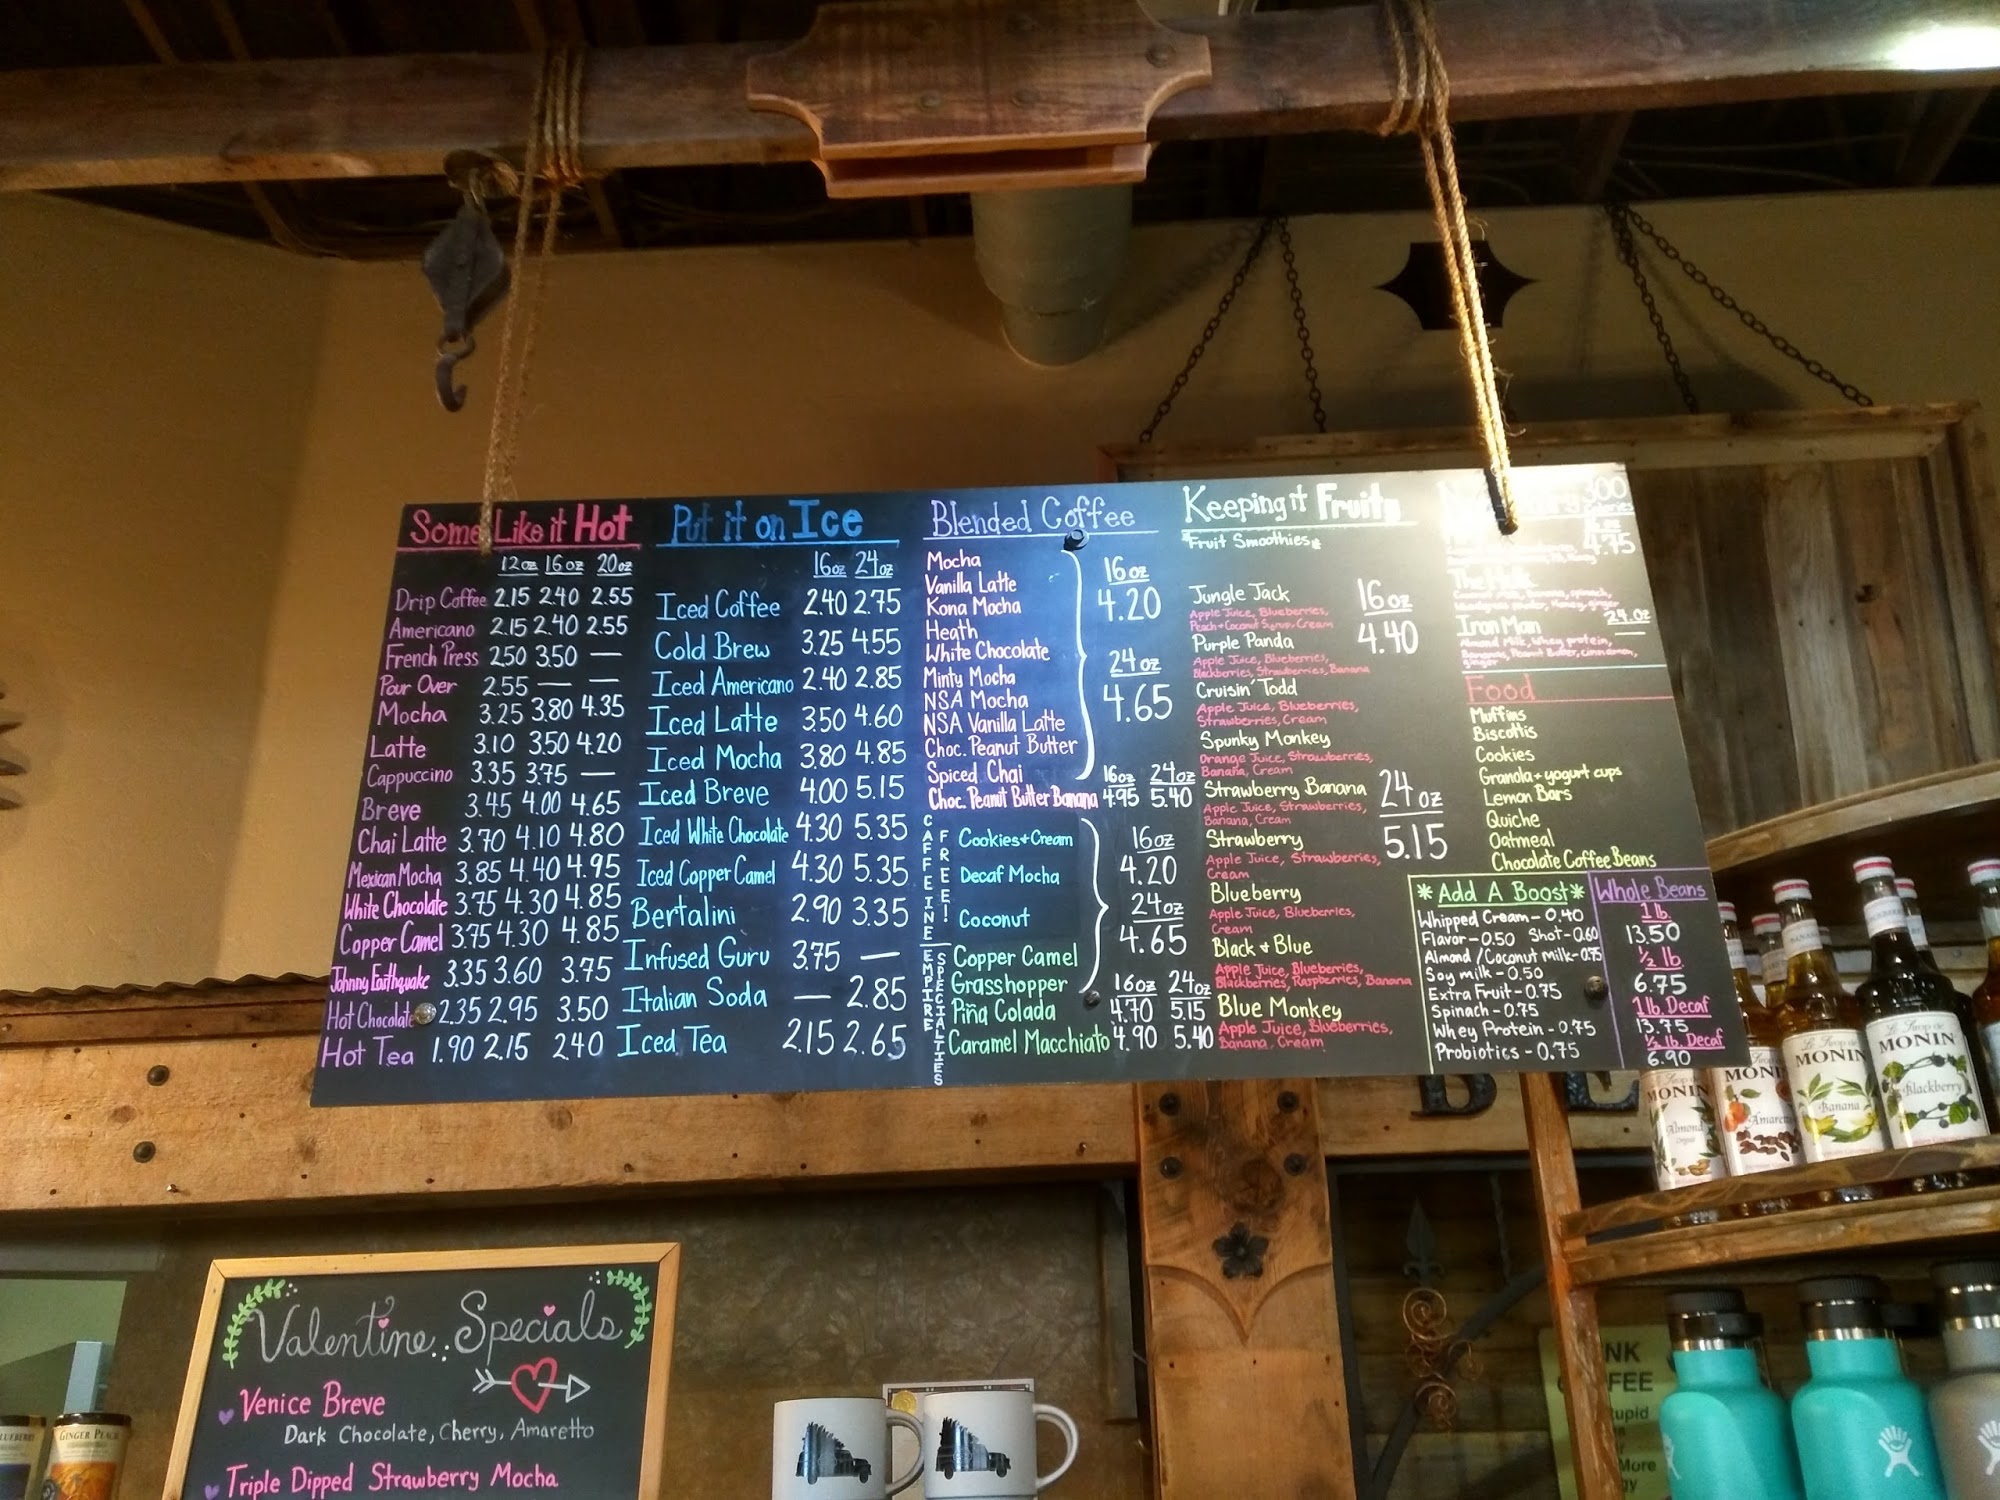 Some Like it Hot
12oz 16oz 20oz
Drip Coffee 2.15 2.40 2.55
Americano 2.15 2.40 2.55
French Press 2.50 3.50 —
Pour Over 2.55 — —
Mocha 3.25 3.80 4.35
Latte 3.10 3.50 4.20
Cappuccino 3.35 3.75 —
Breve 3.45 4.00 4.65
Chai Latte 3.70 4.10 4.80
Mexican Mocha 3.85 4.40 4.95
White Chocolate 3.75 4.30 4.85
Copper Camel 3.75 4.30 4.85
Johnny Earthquake 3.35 3.60 3.75
Hot Chocolate 2.35 2.95 3.50
Hot Tea 1.90 2.15 2.40
Put it on Ice
16oz 24oz
Iced Coffee 2.40 2.75
Cold Brew 3.25 4.55
Iced Americano 2.40 2.85
Iced Latte 3.50 4.60
Iced Mocha 3.80 4.85
Iced Breve 4.00 5.15
Iced White Chocolate 4.30 5.35
Iced Copper Camel 4.30 5.35
Bertalini 2.90 3.35
Infused Guru 3.75 —
Italian Soda — 2.85
Iced Tea 2.15 2.65
Blended Coffee
Mocha
Vanilla Latte
Kona Mocha
Heath
White Chocolate
Minty Mocha
NSA Mocha
NSA Vanilla Latte
Choc. Peanut Butter
Spiced Chai
16oz
4.20
24oz
4.65
16oz 24oz
Choc. Peanut Butter Banana 4.95 5.40
CAFFEINE FREE!
Cookies+Cream
Decaf Mocha
Coconut
16oz
4.20
24oz
4.65
EMPIRE SPECIALTIES
Copper Camel
Grasshopper
Piña Colada
16oz 24oz
4.70 5.15
Caramel Macchiato 4.90 5.40
Keeping it Fruity
*Fruit Smoothies*
Jungle Jack
Apple Juice, Blueberries,
Peach+Coconut Syrup, Cream
Purple Panda
Apple Juice, Blueberries,
Blackberries, Strawberries, Banana
Cruisin' Todd
Apple Juice, Blueberries,
Strawberries, Cream
Spunky Monkey
Orange Juice, Strawberries,
Banana, Cream
Strawberry Banana
Apple Juice, Strawberries,
Banana, Cream
Strawberry
Apple Juice, Strawberries,
Cream
Blueberry
Apple Juice, Blueberries,
Cream
Black + Blue
Apple Juice, Blueberries,
Blackberries, Raspberries, Banana
Blue Monkey
Apple Juice, Blueberries,
Banana, Cream
16oz
4.40
24oz
5.15
300
4.75
The Hulk
Iron Man
24oz
Almond Milk, Whey protein,
Bananas, Peanut Butter, cinnamon,
ginger
Food
Muffins
Biscottis
Cookies
Granola+yogurt cups
Lemon Bars
Quiche
Oatmeal
Chocolate Coffee Beans
*Add A Boost*
Whipped Cream-0.40
Flavor-0.50 Shot-0.60
Almond/Coconut milk-0.75
Soy milk-0.50
Extra Fruit-0.75
Spinach-0.75
Whey Protein-0.75
Probiotics-0.75
Whole Beans
1 lb.
13.50
½ lb
6.75
1 lb. Decaf
13.75
½ lb. Decaf
6.90
MONIN
Almond
MONIN
Le Sirop de
MONIN
Banana
Le Sirop de
MONIN
Blackberry
Valentine Specials
Venice Breve
Dark Chocolate, Cherry, Amaretto
Triple Dipped Strawberry Mocha
GINGER PEACH